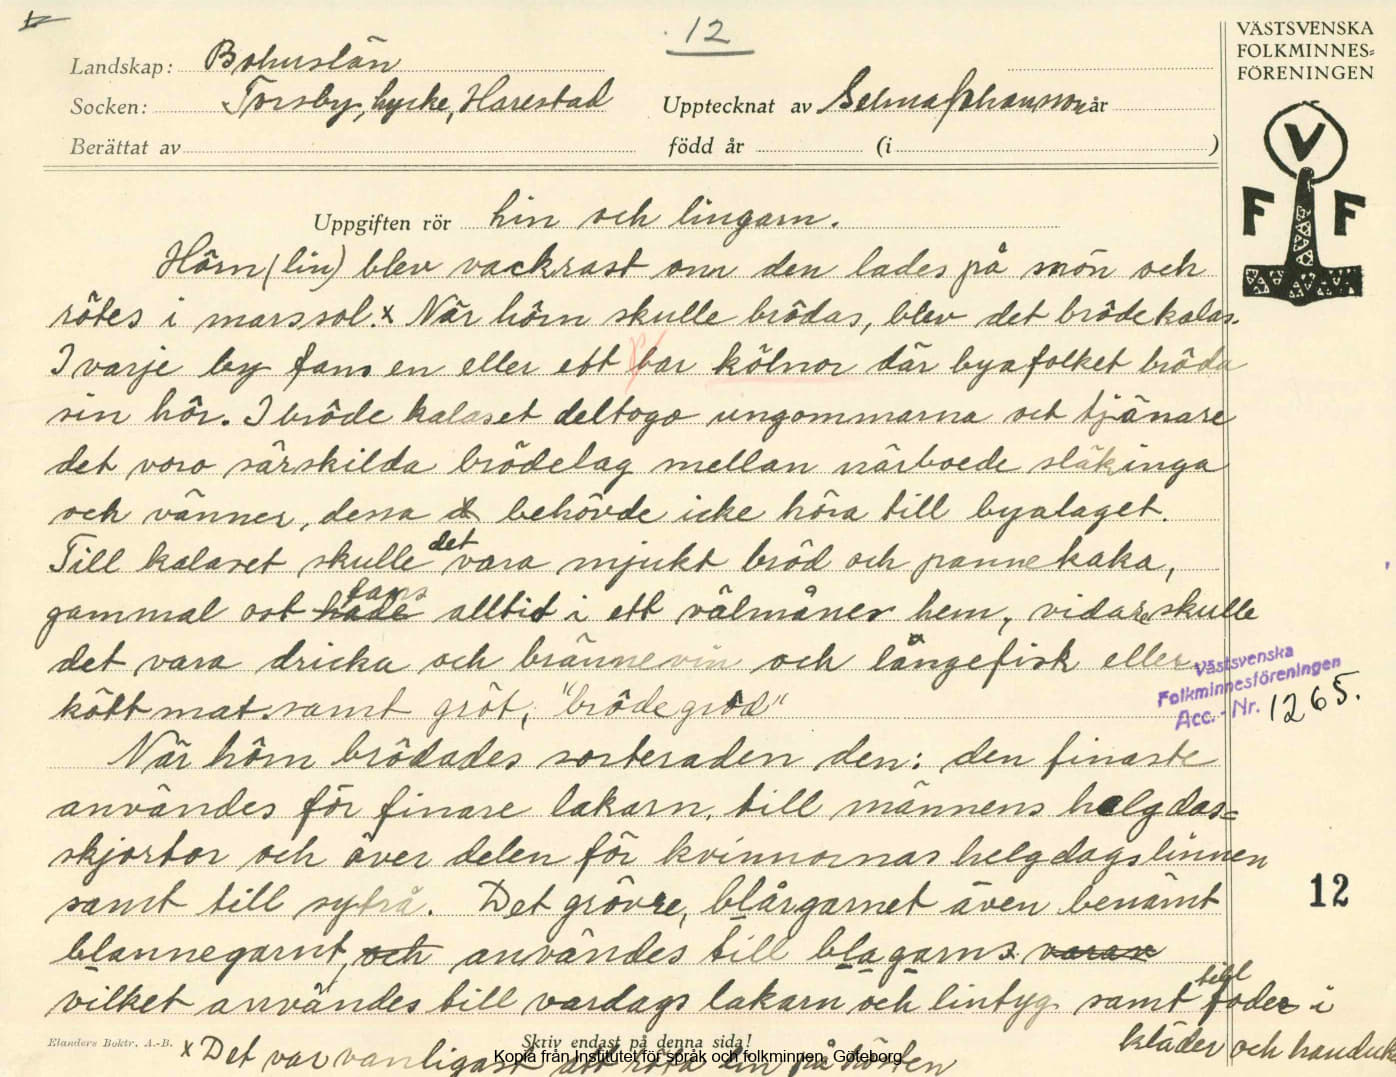 12
VÄSTSVENSKA
FOLKMINNES=
FÖRENINGEN
Landskap: Bohuslän
Socken: Torsby, Lycke, Harestad Upptecknat av Selma Johansson år
Berättat av född år (i )
V
F F
Uppgiften rör Lin och lingarn.
Hörn (lin) blev vackrast om den lades på snön och
rötes i marssol. x När hörn skulle brödas, blev det brödekalas.
I varje by fans en eller ett par kölnor där byafolket bröda
sin hör. I brödekalaset deltogo ungommarna och tjänare
det voro särskilda brödelag mellan närboede släkinga
och vänner, dessa behövde icke höra till byalaget.
Till kalaset skulle det vara mjukt bröd och pannekaka,
gammal ost hade fans alltid i ett välmånes hem, vidare skulle
det vara dricka och brännevin och långefisk eller
köttmat samt gröt, "brödegröd"
När hörn brödades sorteraden den: den finaste
användes för finare lakarn, till männens helgdas=
skjortor och över delen för kvinnornas helgdagslinnen
samt till sytrå. Det grövre, blårgarnet även benämt
blannegarnt, och användes till blagarns varan
vilket användes till vardags lakarn och lintyg samt till foder i
kläder och handuk
x Det var vanligast att röta lin på hösten
Västsvenska
Folkminnesföreningen
Acc. - Nr. 1265.
12
Elanders Boktr. A.-B.
Skriv endast på denna sida!
Kopia från Institutet för språk och folkminnen, Göteborg